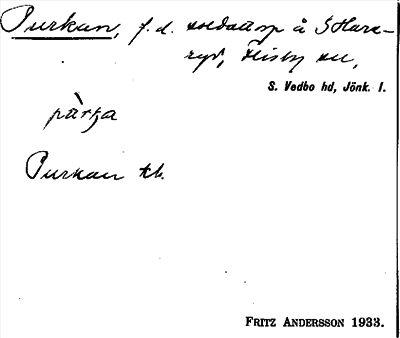 Purkan, f. d. soldattp å S Hare-
ryd, Flisby sn,
S. Vedbo hd, Jönk. l.
pàrka
Purkan kb.
FRITZ ANDERSSON 1933.